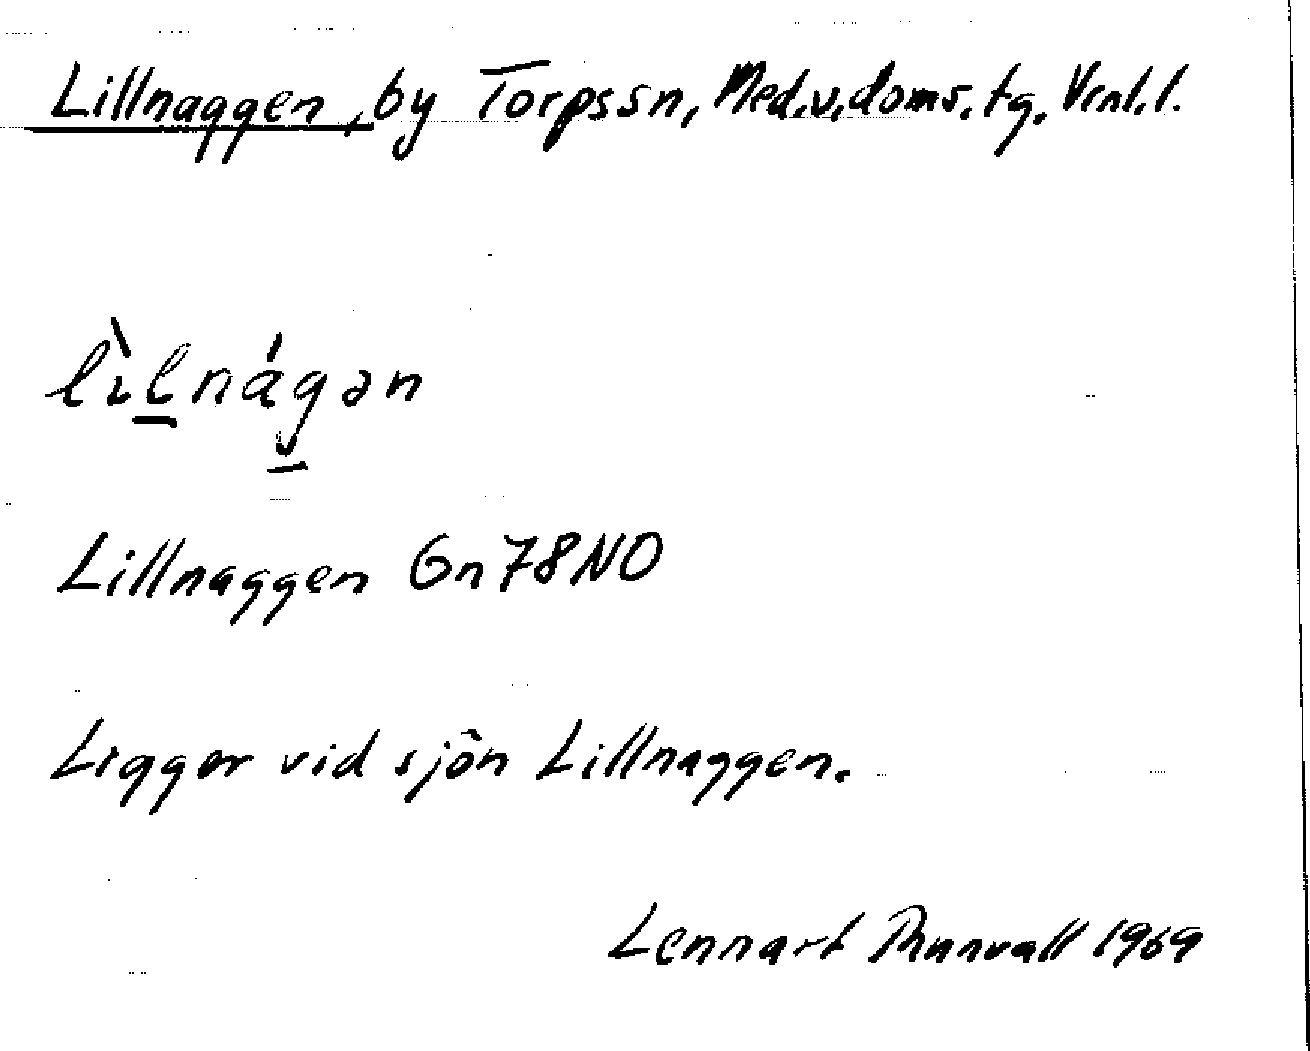 Lillnaggen, by Torps sn, Med.v.doms.tg. Vrnl.l.
lìlnágən
Lillnaggen Gn78NO
Ligger vid sjön Lillnaggen.
Lennart 1969